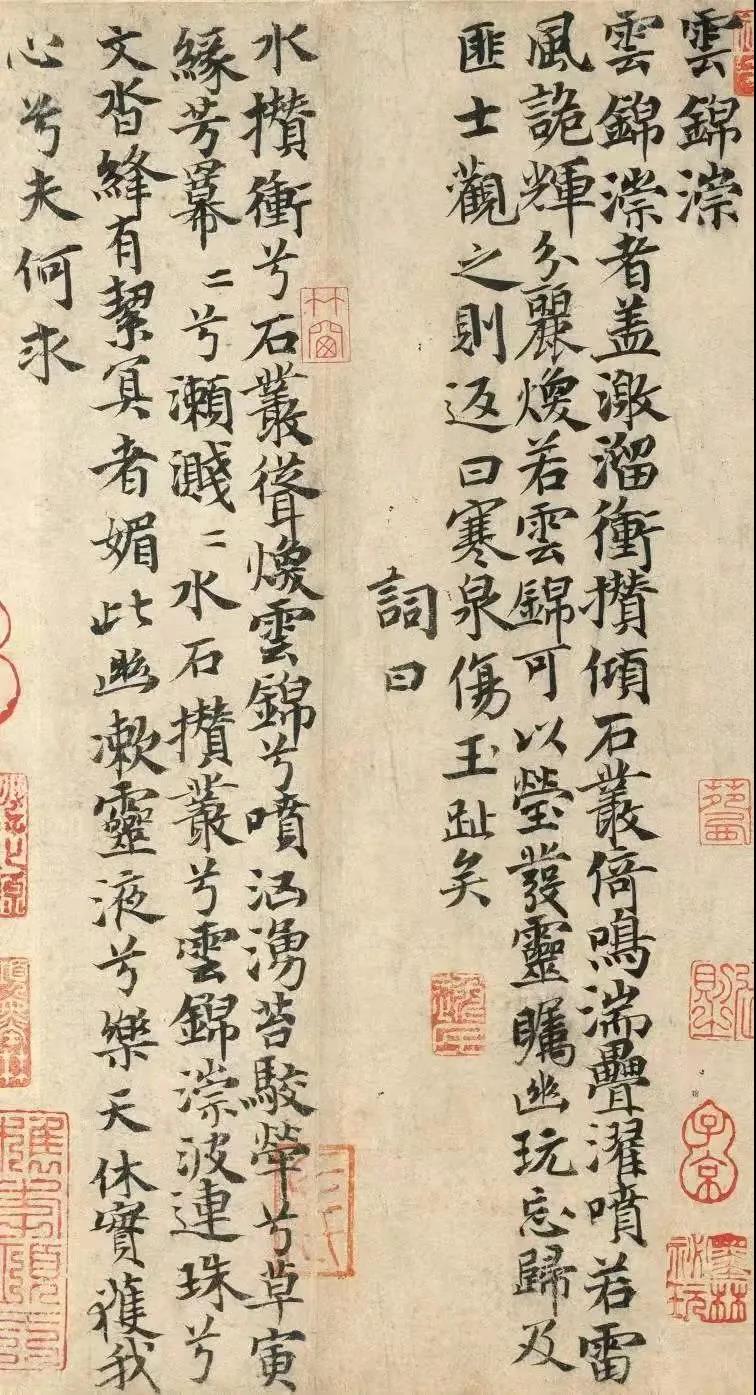 雲錦淙
雲錦淙者盖激溜衝攅傾石叢倚鳴湍疊濯噴若雷
風詭輝分麗煥若雲錦可以瑩發靈矚幽玩忘歸及
匪士觀之則返曰寒泉傷玉趾矣
詞曰
水攅衝兮石叢聳煥雲錦兮噴汹湧苔駁犖兮草寅
緣芳羃〻兮瀨濺〻水石攅叢兮雲錦淙波連珠兮
文沓縫有絜冥者媚此幽漱靈液兮樂天休實獲我
心兮夫何求
子京
墨林
祕玩